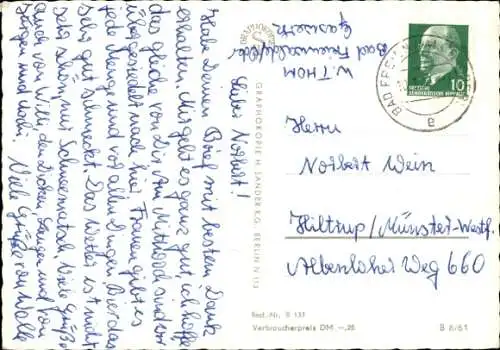 Lieber Norbert!
Habe Deinen Brief mit bestem Dank
erhalten. Mir geht es ganz gut ich hoffe
das gleiche von Dir. Am Mittwoch sind wir
übergesiedelt nach hier. Frauen gibt es
jede Menge und vor allen Dingen Bier das
sehr gut schmeckt. Das Wetter ist nicht
sehr schön, nur Schneematsch. Viele Grüße
auch von Willi den Dicken, und von
Jürgen und
Viel Grüße von
W. THOM
Bad Freienwalde/Oder
GRAPHOKOPIE H. SANDER K.G. BERLIN N 113
BAD FREIENWALDE
e
10
DEUTSCHE
DEMOKRATISCHE REPUBLIK
Herrn
Norbert Wein
Hiltrup/Münster-Westf.
Albersloher Weg 660
Best.-Nr. B 131
Verbraucherpreis DM -,25
B 8/61